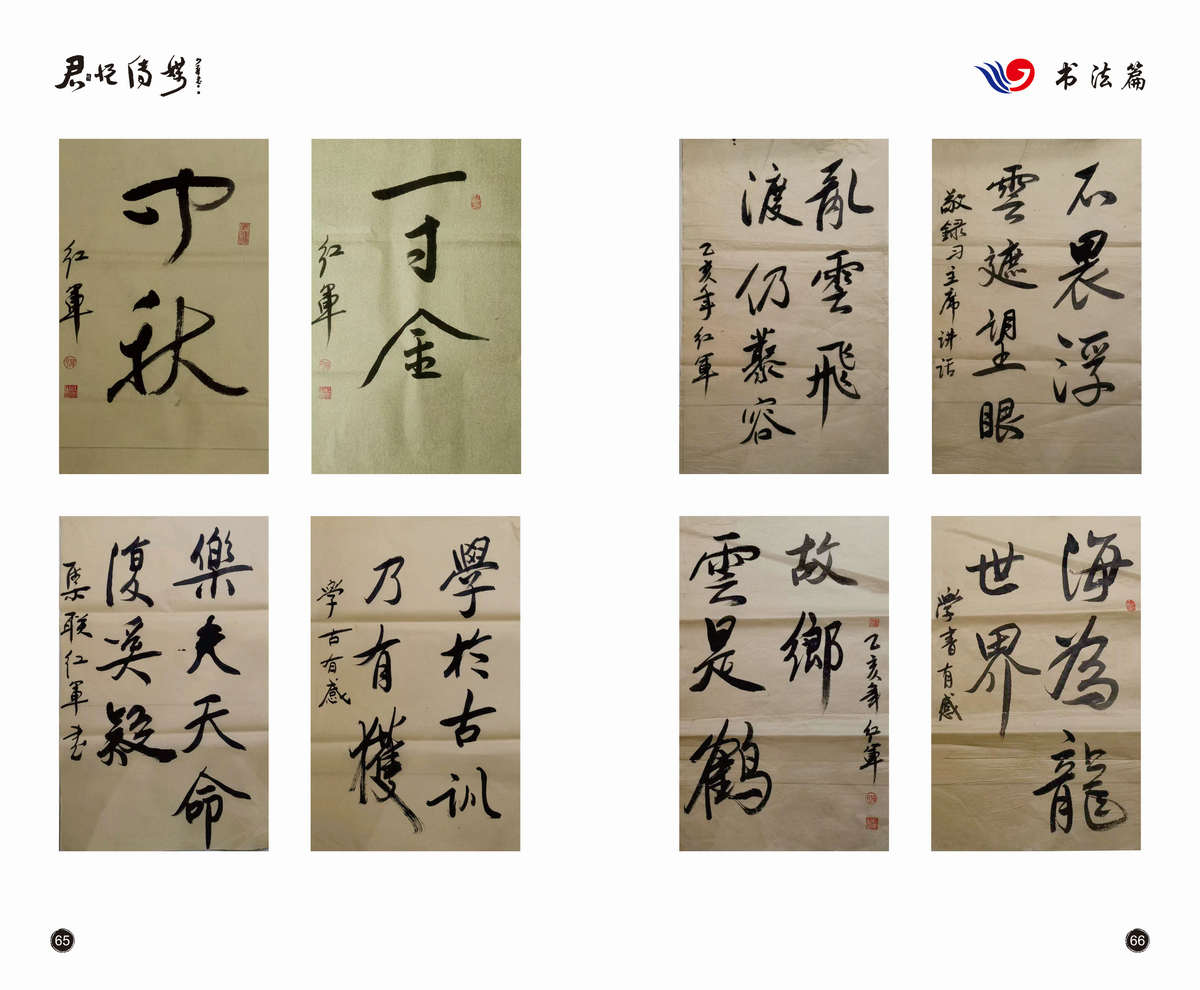 君 傳媒
书法篇
中秋
红軍
一寸金
红軍
亂雲飛
渡仍 容
乙亥年红軍
不畏浮
雲遮望眼
敬録习主席讲话
樂夫天命
復奚疑
集联红軍书
學於古訓
乃有獲
学古有感
故鄉
雲是鶴
乙亥年红軍
海為龍
世界
学書有感
65
66